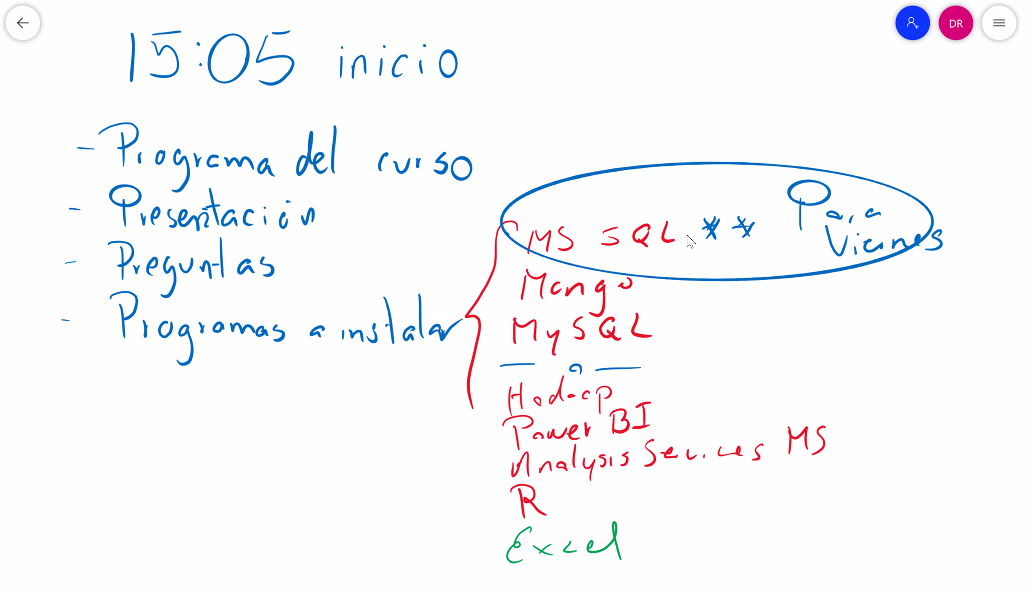 DR
15:05 inicio
- Programa del curso
- Presentación
- Preguntas
- Programas a instalar
MS SQL ** Para
Viernes
Mongo
MySQL
Hadoop
Power BI
Analysis Services MS
R
Excel